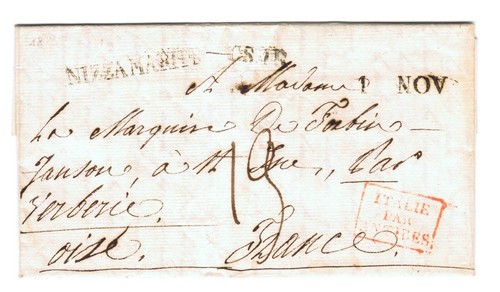 NIZZA MARITT
A Madame
1 NOV
La Marquise De Forbin-
Janson à St , Par
Verberie.
oise. France.
ITALIE
PAR
ANTIBES.